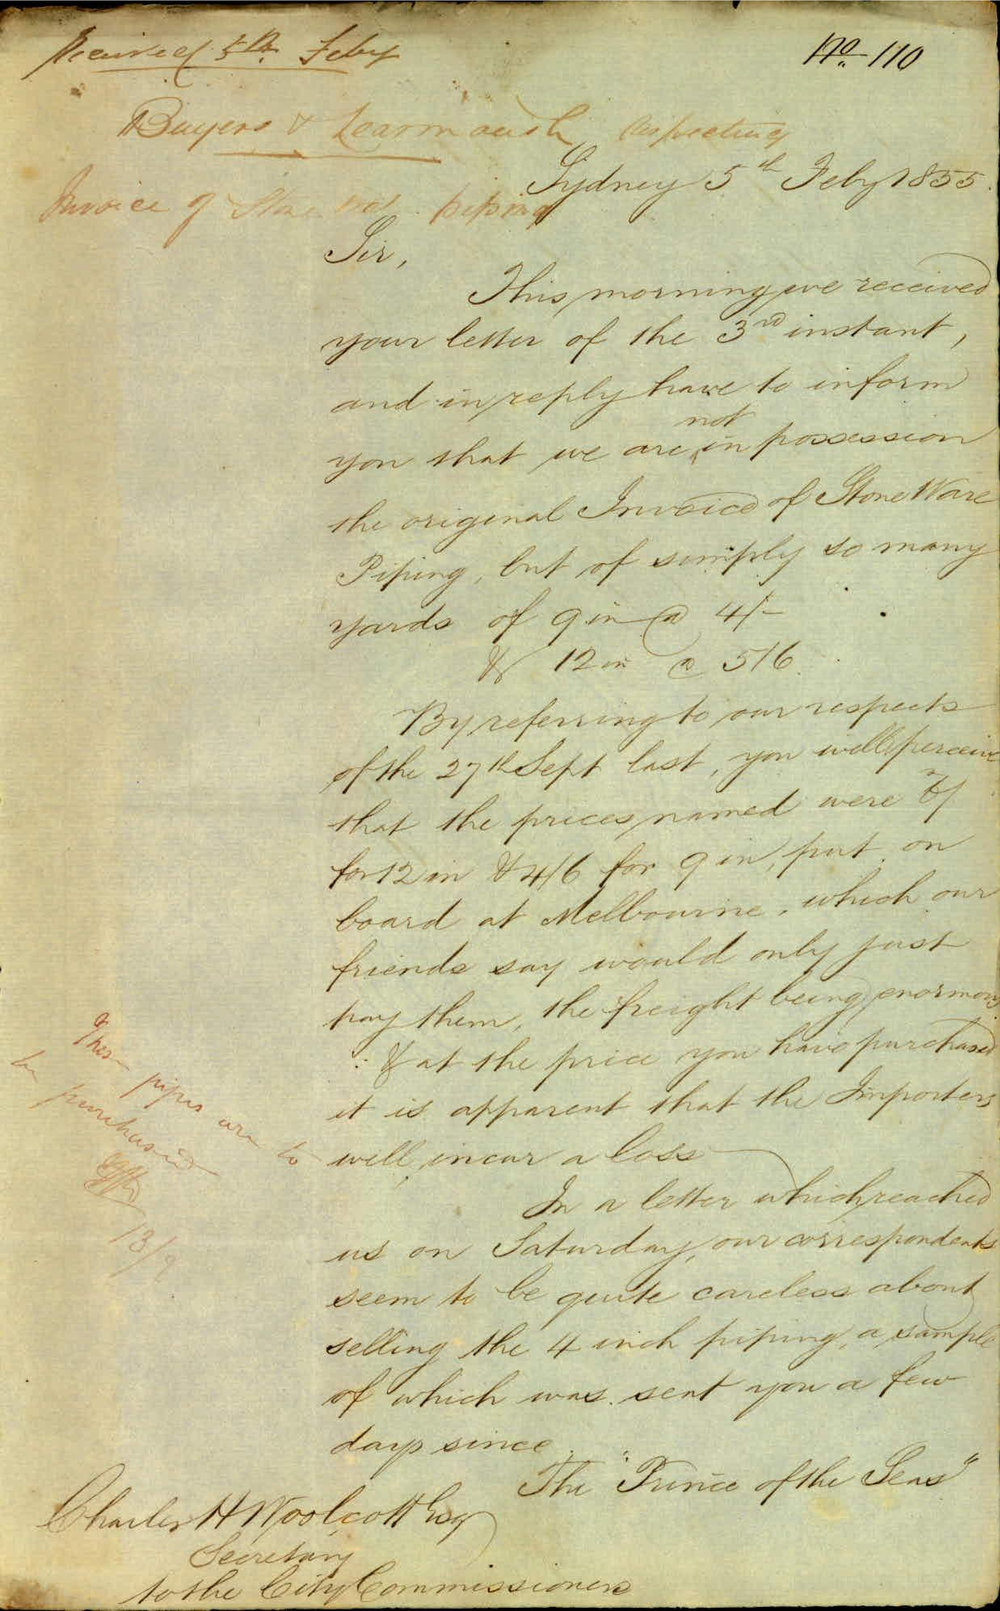 Received 5th Feby
No. 110
Buyers & Learmonth respecting
Sydney 5th Feby 1855.
Invoice of Stone ware piping
Sir,
This morning we received
your letter of the 3rd instant,
and in reply have to inform
not
you that we are in possession
the original Invoice of Stone Ware
Piping, but of simply so many
yards of 9 in @ 4/-
& 12 in @ 5/6.
By referring to our respects
of the 27th Sept last, you will perceive
that the prices named were
for 12 in & 4/6 for 9 in, put on
board at Melbourne, which our
friends say would only just
pay them, the freight being enormous
: & at the price you have purchased
it is apparent that the Importers
will incur a loss
These pipes are to
be purchased
13/9
In a letter which reached
us on Saturday, our correspondents
seem to be quite careless about
selling the 4 inch piping, a sample
of which was sent you a few
days since.
The "Prince of the Seas"
Charles H Woolcott Esq
Secretary
to the City Commissioners